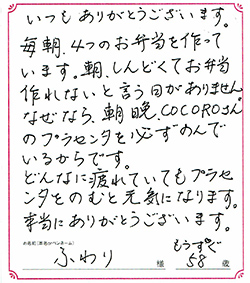 いつもありがとうございます。
毎朝、4つのお弁当を作って
います。朝、しんどくてお弁当
作れないと言う日がありません。
なぜなら、朝晩、COCOROさん
のプラセンタを必ずのんで
いるからです。
どんなに疲れていてもプラセ
ンタをのむと元気になります。
本当にありがとうございます。
お名前（本名orペンネーム） もうすぐ
ふわり 様 58歳